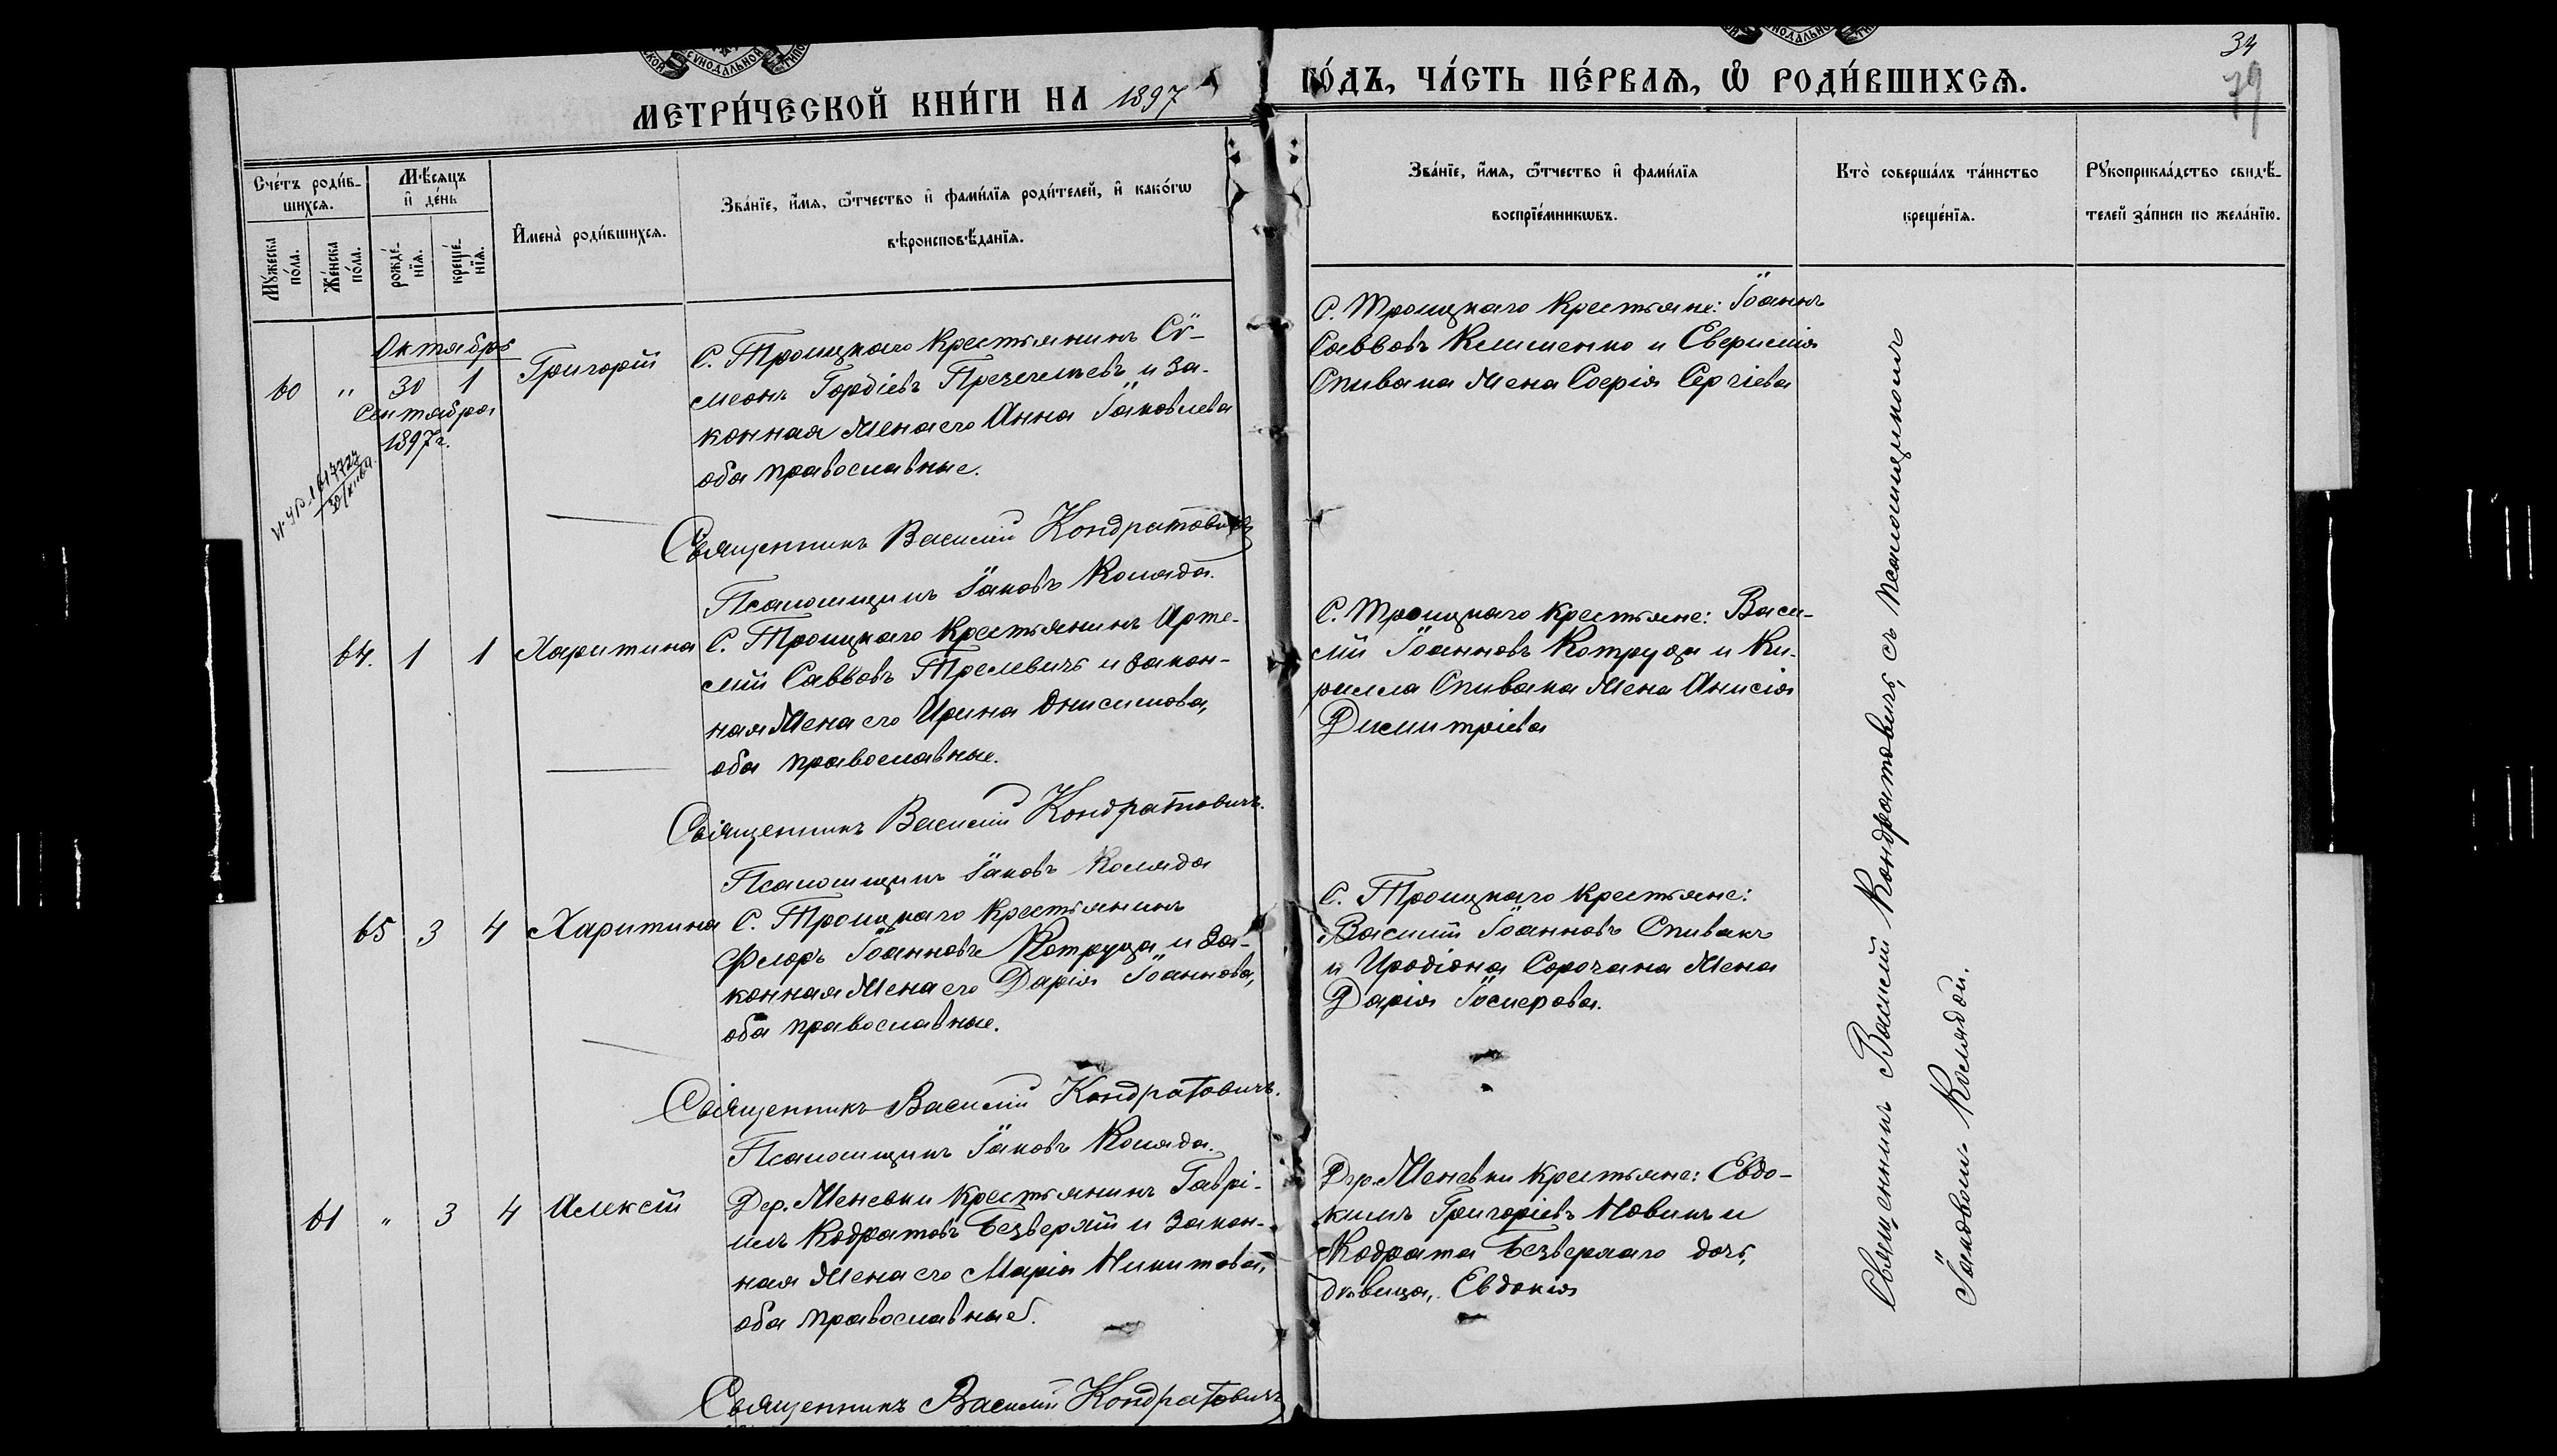 34
79
МЕТРИ́ЧЕСКОЙ КНИ́ГИ НА 1897
ГО́ДЪ, ЧА́СТЬ ПЕ́РВАѦ, Ѡ҆ РОДИ́ВШИХСѦ.
Сче́тъ роди́в-
шихсѧ.
Мѣ́сѧцъ
и҆ де́нь
Мꙋ́жеска
по́ла.
Же́нска
по́ла.
рожде́-
нїѧ.
креще́-
нїѧ.
И҆мена̀ роди́вшихсѧ.
Зва́нїе, и҆́мѧ, ѻ҆́тчество и҆ фами́лїѧ роди́телей, и҆ како́гѡ
вѣроисповѣ́данїѧ.
Зва́нїе, и҆́мѧ, ѻ҆́тчество и҆ фами́лїѧ
воспрїе́мникѡвъ.
Кто̀ соверша́лъ та́инство
креще́нїѧ.
Рꙋкоприкла́дство свидѣ́-
телей за́писи по жела́нїю.
Октябрь
60 " 30 1 Григорій
Сентября
1897 г.
С. Троицкаго крестьянинъ Сѵ-
меонъ Гордіевъ и за-
конная жена его Анна Іаковлева
оба православные.
Священникъ Василій Кондратовичъ
Псаломщикъ Іаковъ Коляда.
С. Троицкаго крестьяне: Іоаннъ
Савовъ Клименко и
Спивака жена Софія Сергіева
64. 1 1 Харитина
С. Троицкаго крестьянинъ Арте-
мій Саввовъ Телевичъ и закон-
ная жена его Ирина Онисимова,
оба православные.
Священникъ Василій Кондратовичъ.
Псаломщикъ Іаковъ Коляда
С. Троицкаго крестьяне: Васи-
лій Іоанновъ Котруца и Ки-
рилла Спивака жена Анисія
Димитріева
65 3 4 Харитина
С. Троицкаго крестьянинъ
Флоръ Іоанновъ Котруца и за-
конная жена его Дарія Іоаннова,
оба православные.
Священникъ Василій Кондратовичъ.
Псаломщикъ Іаковъ Коляда.
С. Троицкаго крестьяне:
Василій Іоанновъ Спивакъ
и Иродіона Сорочана жена
Дарія
61 " 3 4 Алексій
Дер. Женевки крестьянинъ Гаврі-
илъ Кодратовъ Безверхій и закон-
ная жена его Марія Никитова,
оба православные.
Священникъ Василій Кондратовичъ
Дер. Женевки крестьяне: Евдо-
кимъ Григоріевъ Новикъ и
Кодрата Безверхаго дочь,
дѣвица, Евдокія
Священникъ Василій Кондратовичъ, съ псаломщикомъ
Іаковомъ Колядой.